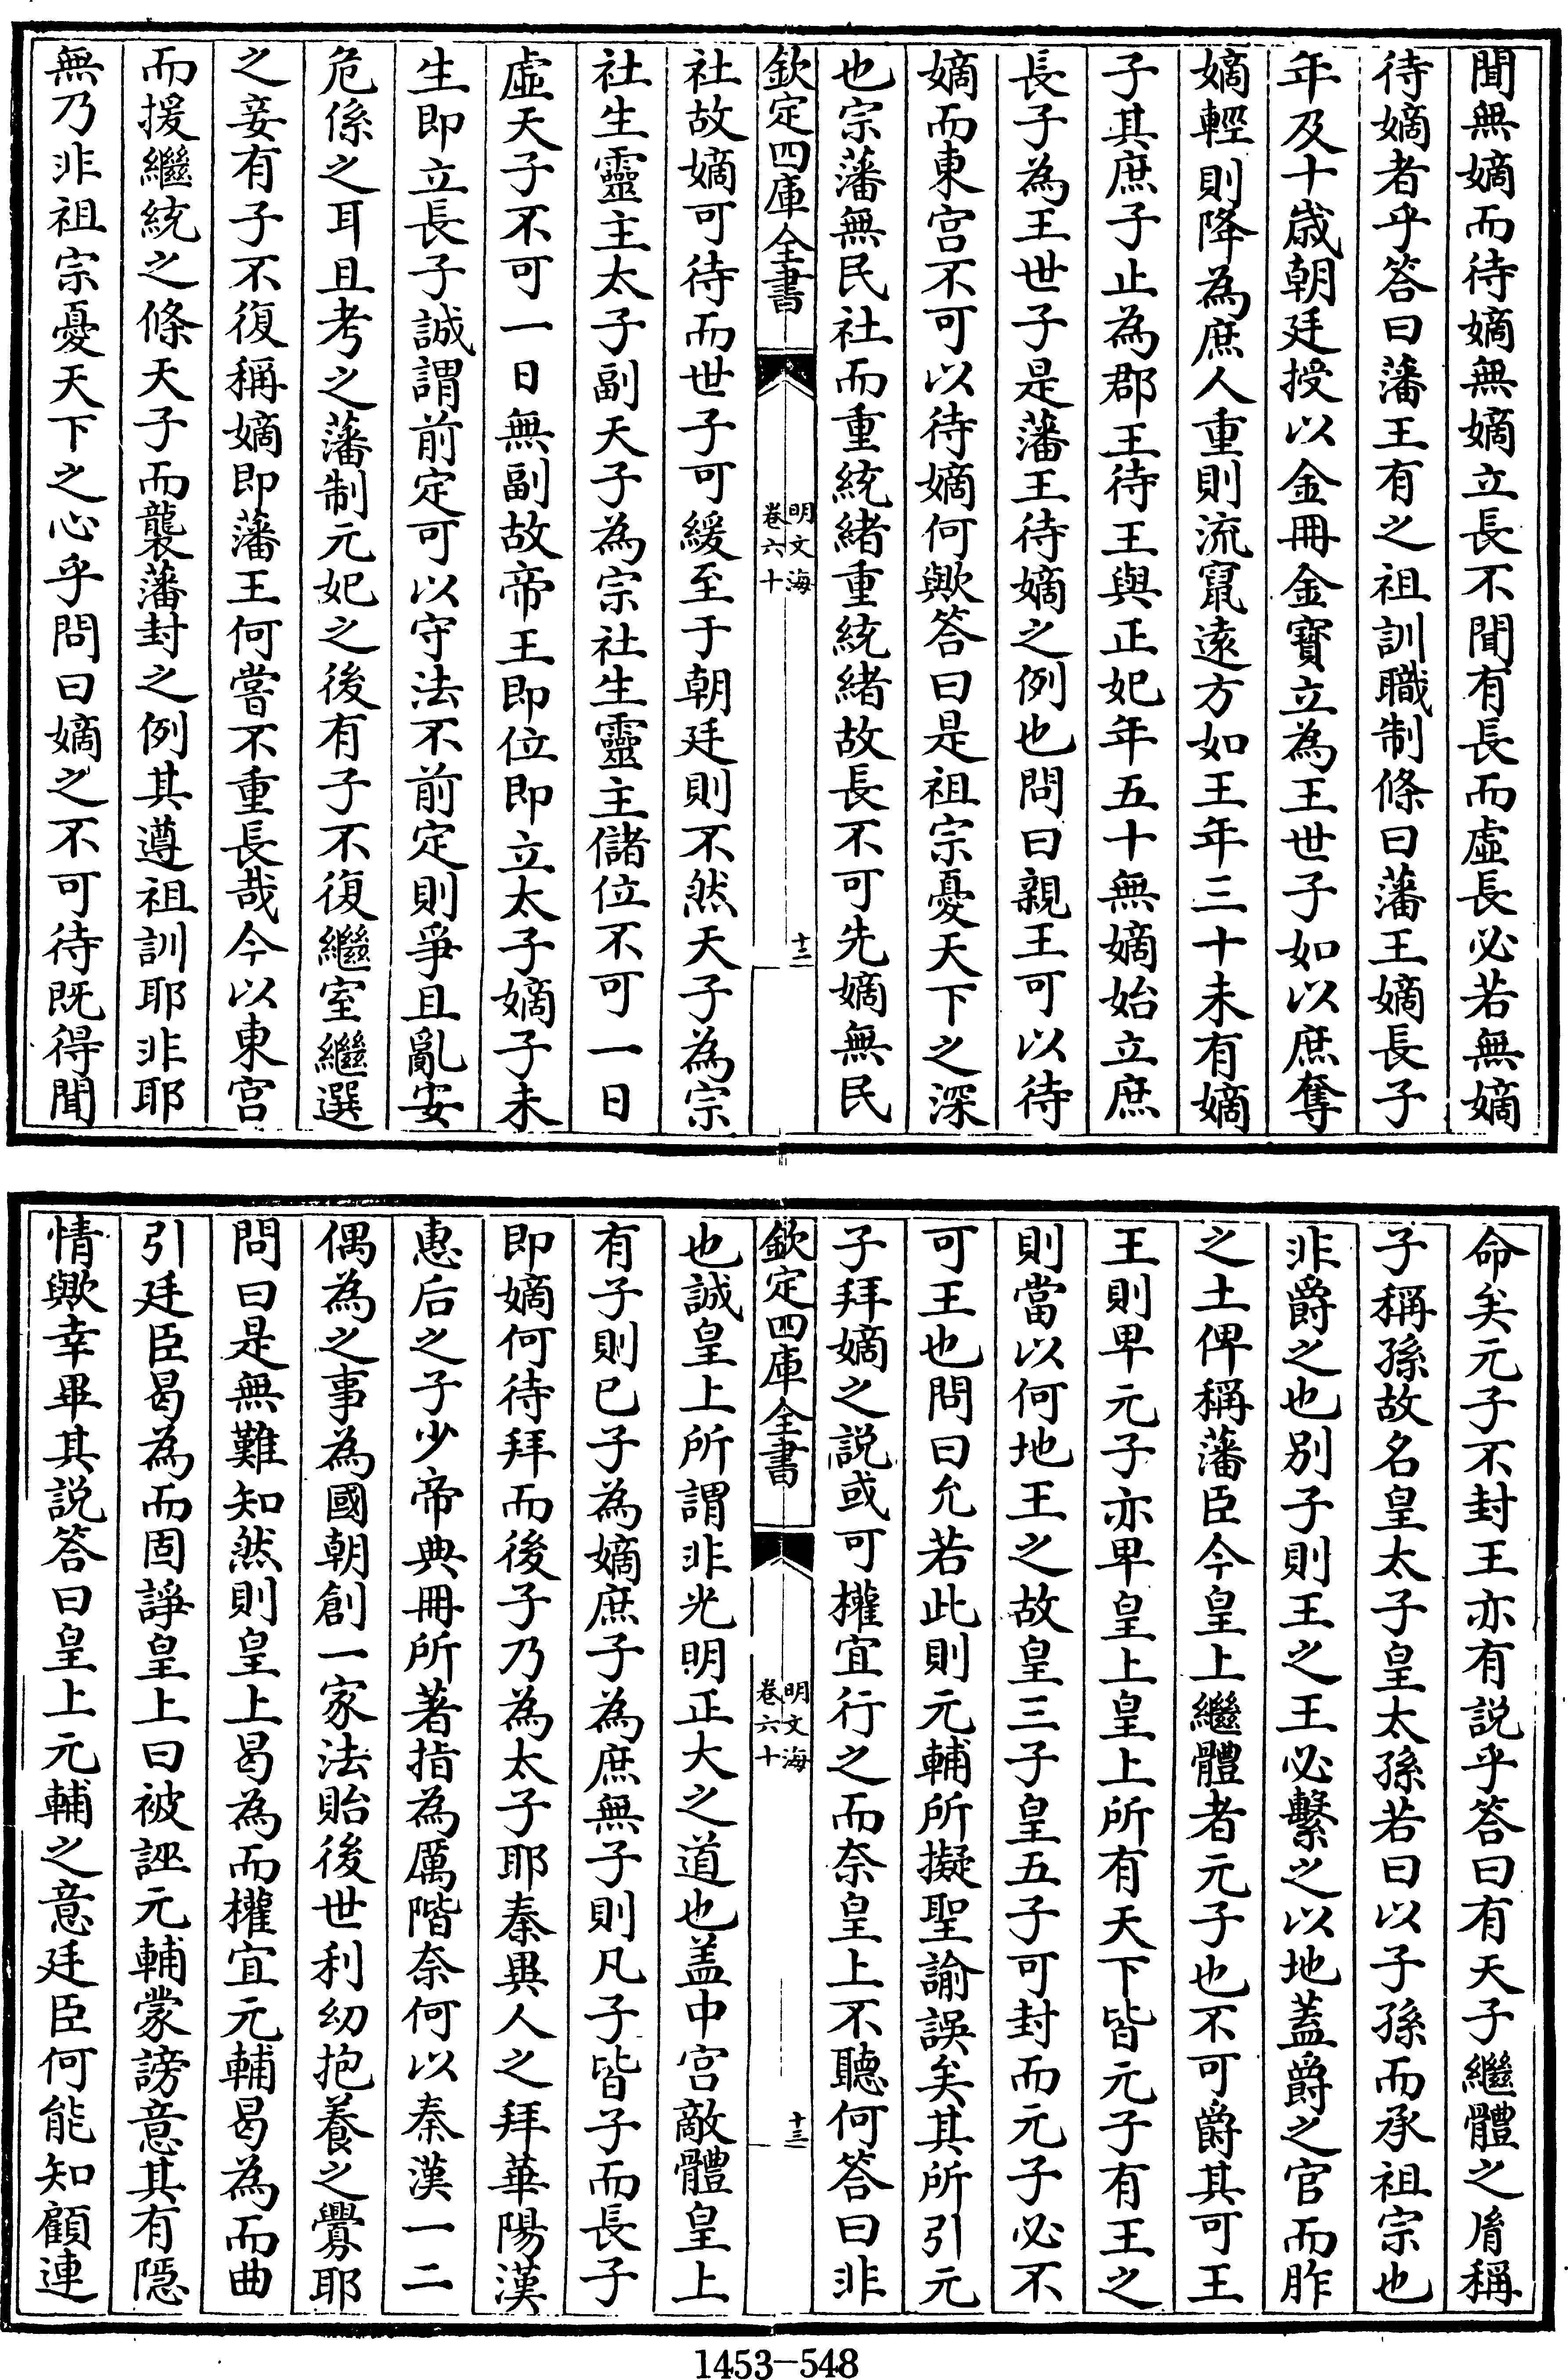 聞無嫡而待嫡無嫡立長不聞有長而虛長必若無嫡
待嫡者乎答曰藩王有之祖訓職制條曰藩王嫡長子
年及十歲朝廷授以金冊金寶立為王世子如以庶奪
嫡輕則降為庶人重則流竄遠方如王年三十未有嫡
子其庶子止為郡王待王與正妃年五十無嫡始立庶
長子為王世子是藩王待嫡之例也問曰親王可以待
嫡而東宮不可以待嫡何歟答曰是祖宗憂天下之深
也宗藩無民社而重統緒重統緒故長不可先嫡無民
欽定四庫全書
明文海
卷六十
十二
社故嫡可待而世子可緩至于朝廷則不然天子為宗
社生靈主太子副天子為宗社生靈主儲位不可一日
虛天子不可一日無副故帝王即位即立太子嫡子未
生即立長子誠謂前定可以守法不前定則爭且亂安
危係之耳且考之藩制元妃之後有子不復繼室繼選
之妾有子不復稱嫡即藩王何嘗不重長哉今以東宮
而援繼統之條天子而襲藩封之例其遵祖訓耶非耶
無乃非祖宗憂天下之心乎問曰嫡之不可待既得聞
命矣元子不封王亦有說乎答曰有天子繼體之胤稱
子稱孫故名皇太子皇太孫若曰以子孫而承祖宗也
非爵之也別子則王之王必繫之以地蓋爵之官而胙
之土俾稱藩臣今皇上繼體者元子也不可爵其可王
王則卑元子亦卑皇上皇上所有天下皆元子有王之
則當以何地王之故皇三子皇五子可封而元子必不
可王也問曰允若此則元輔所擬聖諭誤矣其所引元
子拜嫡之說或可權宜行之而奈皇上不聽何答曰非
欽定四庫全書
明文海
卷六十
十三
也誠皇上所謂非光明正大之道也盖中宮敵體皇上
有子則已子為嫡庶子為庶無子則凡子皆子而長子
即嫡何待拜而後子乃為太子耶秦異人之拜華陽漢
惠后之子少帝典冊所著指為厲階奈何以秦漢一二
偶為之事為國朝創一家法貽後世利幼抱養之釁耶
問曰是無難知然則皇上曷為而權宜元輔曷為而曲
引廷臣曷為而固諍皇上曰被誣元輔蒙謗意其有隱
情歟幸畢其說答曰皇上元輔之意廷臣何能知顧連
1453-548